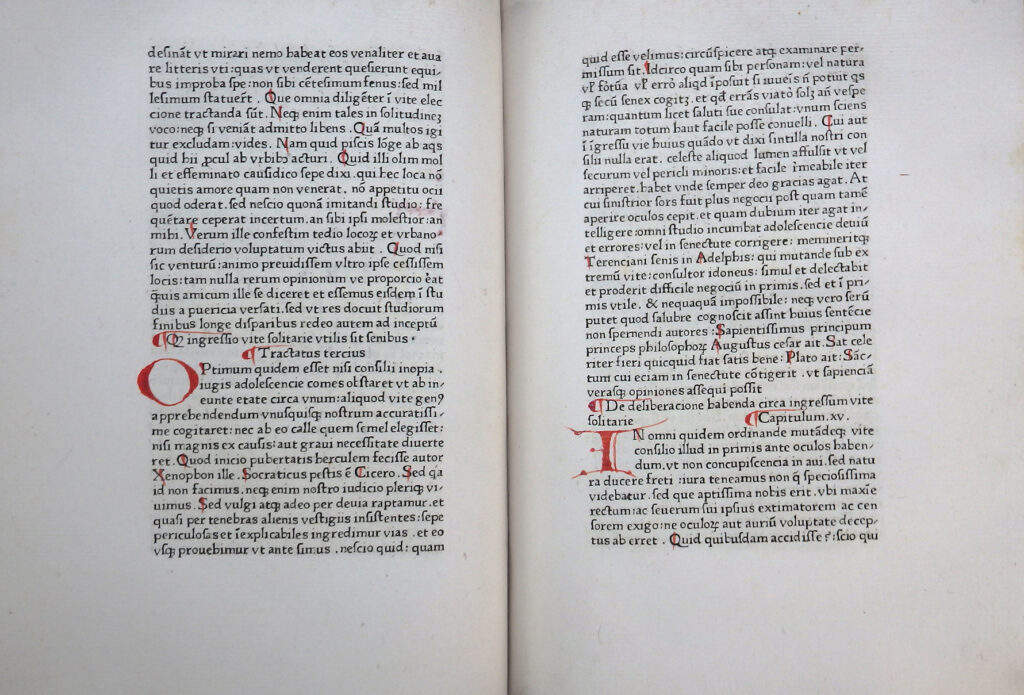 desināt vt mirari nemo habeat eos venaliter et aua
re litteris vti : quas vt venderent quesierunt equi,
bus improba spe : non sibi cētesimum fenus : sed mil
lesimum statuerr̄t . Que omnia diligēter ī vite elec
cione tractanda sūt . Neqȝ enim tales in solitudineȝ
voco : neqȝ si veniāt admitto libens . Quā multos igi
tur excludam : vides . Nam quid piscis lōge ab aqs
quid hii ꝓcul ab vrbibȝ acturi . Quid illi olim mol
li et effeminato causidico sepe dixi . qui hec loca nō
quietis amore quam non venerat . nō appetitu ocii
quod oderat . sed nescio quonā imitandi studio : fre
quētare ceperat incertum . an sibi ipsi molestior : an
mihi . Verum ille confestim tedio locoꝝ et vrbano,
rum desiderio voluptatum victus abiit . Quod nisi
sic venturū : animo preuidissem vltro ipse cessissem
locis : tam nulla rerum opinionum ve proporcio eat
quis amicum ille se diceret et essemus eisdem ī stu
diis a puericia versati . sed vt res docuit studiorum
finibus longe disparibus redeo autem ad inceptū
¶ Q ingressio vite solitarie vtilis sit senibus .
¶ Tractatus tercius
OPtimum quidem esset nisi consilii inopia .
iugis adolescencie comes obstaret vt ab in,
eunte etate circa vnum : aliquod vite genꝰ
apprehendendum vnusquisqȝ nostrum accuratissi,
me cogitaret : nec ab eo calle quem semel elegisset :
nisi magnis ex causis : aut graui necessitate diuerte
ret . Quod inicio pubertatis herculem fecisse autor
Xenophon ille . Socraticus pestis ē Cicero . Sed qa
id non facimus . neqȝ enim nostro iudicio pleriqȝ vi,
uimus . Sed vulgi atqȝ adeo per deuia raptamur . et
quasi per tenebras alienis vestigiis insistentes : sepe
periculosas et īexplicabiles ingredimur vias . et eo
vsqȝ prouehimur vt ante simus . nescio quid : quam
quid esse velimus : circūspicere atqȝ examinare per,
missum sit . Idcirco quam sibi personam : vel natura
vꝉ fōtūa vꝉ errō aliqd īposuit si iuueīs n̄ potuit qs
qȝ secū senex cogitȝ . et qd errās viatō solȝ an̄ vespe
ram : quantum licet saluti sue consulat : vnum sciens
naturam totum haut facile posse conuelli . Cui aut
ī īgressu vie huius quādo vt dixi sintilla nostri con
silii nulla erat . celeste aliquod lumen affulsit vt vel
securum vel pericli minoris : et facile īrmeabile iter
arriperet . habet vnde semper deo gracias agat . At
cui sinistrior sors fuit plus negocii post quam tamē
aperire oculos cepit . et quam dubium iter agat in,
telligere : omni studio incumbat adolescencie deuiū
et errores : vel in senectute corrigere : memineritqȝ
Terenciani senis in Adelphis : qui mutande sub ex
tremū vite : consultor idoneus : simul et delectabit
et proderit difficile negociū in primis . sed et ī pri,
mis vtile . & nequaquā impossibile : neqȝ vero serū
putet quod salubre cognoscit assint huius sentēcie
non spernendi autores : Sapientissimus principum
princeps philosophoꝝ Augustus cesar ait . Sat cele
riter fieri quicquid fiat satis bene : Plato ait : Sāc,
tum cui eciam in senectute cōtigerit . vt sapienciā
verasqȝ opiniones assequi possit
¶ De deliberacione habenda circa ingressum vite
solitarie ¶ Capitulum . xv .
IN omni quidem ordinande mutādeqȝ vite
consilio illud in primis ante oculos haben,
dum . vt non concupiscencia in aui . sed natu
ra ducere freti : iura teneamus non q speciosissima
videbatur . sed que aptissima nobis erit . vbi maxīe
rectum : ac seuerum sui ipsius extimatorem ac cen
sorem exigo : ne oculoꝝ aut auriū voluptate decep,
tus ab erret . Quid quibusdam accidisse : scio qui